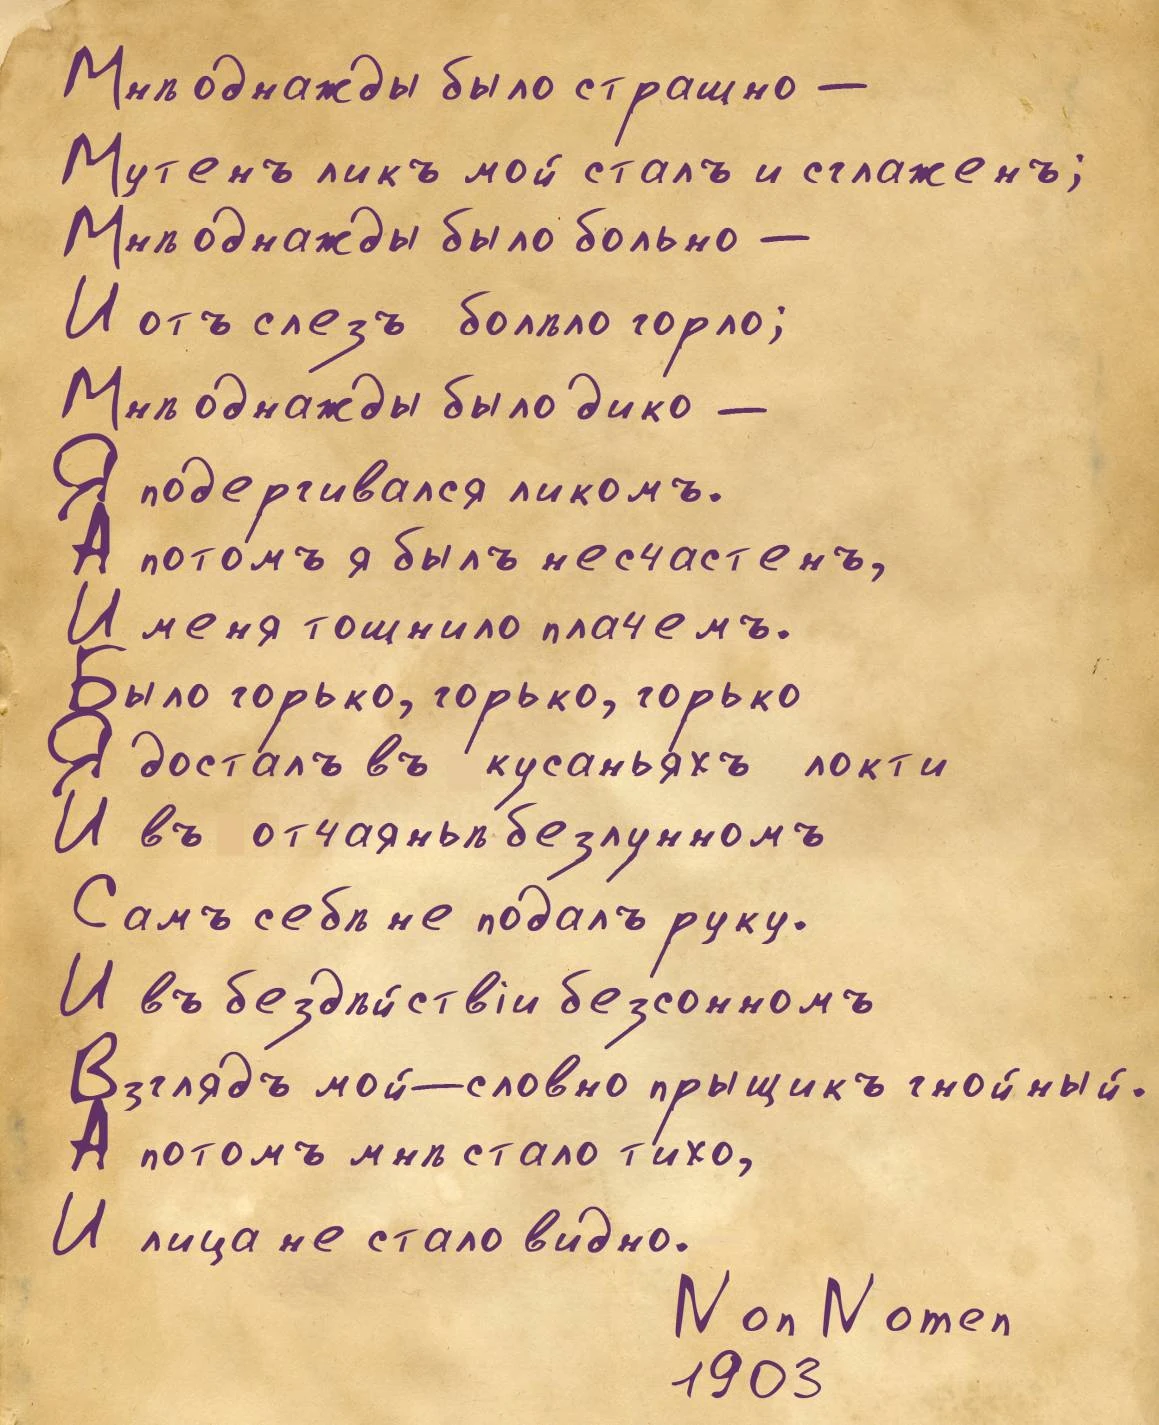 Мнѣ однажды было стращно —
Мутенъ ликъ мой сталъ и сглаженъ;
Мнѣ однажды было больно —
И отъ слезъ болѣло горло;
Мнѣ однажды было дико —
Я подергивался ликомъ.
А потомъ я былъ несчастенъ,
И меня тощнило плачемъ.
Было горько, горько, горько
Я досталъ въ кусаньяхъ локти
И въ отчаяньѣ безлунномъ
Самъ себѣ не подалъ руку.
И въ бездѣйствіи безсонномъ
Взглядъ мой—словно прыщикъ гнойный.
А потомъ мнѣ стало тихо,
И лица не стало видно.
Non Nomen
1903